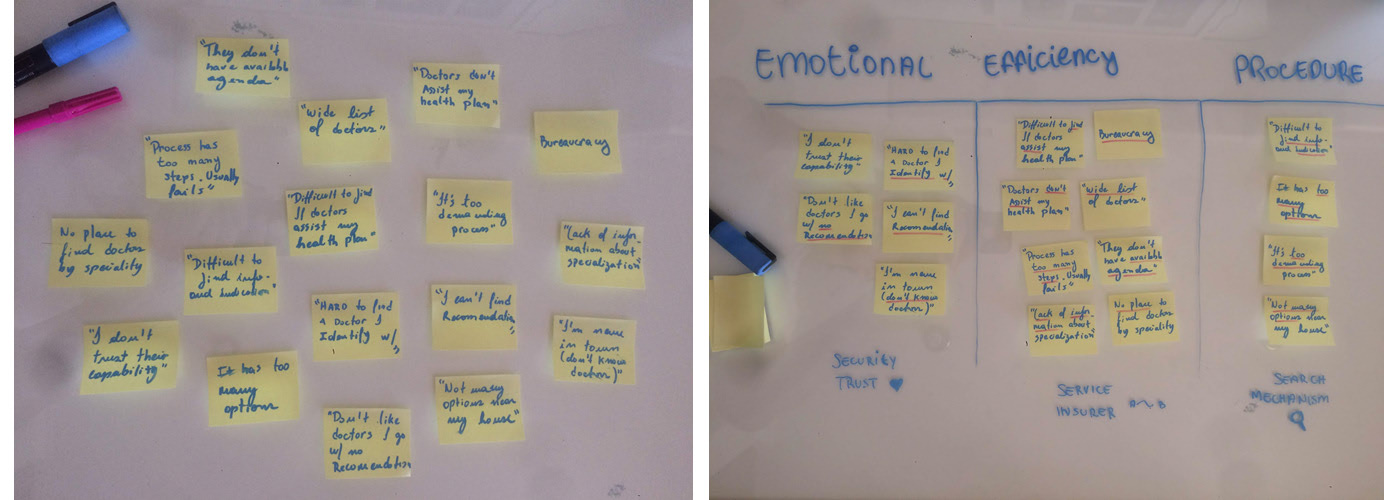 "They don't
have available
agenda"
"Doctors don't
Assist my
health plan"
"Wide list
of doctors"
Bureaucracy
"Process has
too many
steps. Usually
fails"
"Difficult to find
If doctors
assist my
health plan"
"It's too
demanding
process"
No place to
find doctor
by speciality
"Lack of infor-
mation about
specialization"
"Difficult to
find info-
and indication"
"HARD to find
a Doctor I
Identify w/"
"I can't find
Recommendation"
"I don't
trust their
capability"
"I'm new
in town
(don't know
doctor)"
It has too
many
options
"Not many
options near
my house"
"Don't like
doctors I go
w/ no
Recomendation
EMOTIONAL
"I don't
trust their
capability"
"HARD to find
a Doctor I
Identify w/"
"Don't like
doctors I go
w/ no
Recomendation
"I can't find
Recommendation
"I'm new
in town
(don't know
doctor)"
SECURITY
TRUST
EFFICIENCY
"Difficult to find
If doctors
assist my
health plan"
Bureaucracy
"Doctors don't
Assist my
health plan"
"Wide list
of doctors"
"Process has
too many
steps. Usually
fails"
"They don't
have available
agenda"
"Lack of infor-
mation about
specialization"
No place to
find doctor
by speciality
SERVICE
INSURER
PROCEDURE
"Difficult to
find info-
and indication"
It has too
many
options
"It's too
demanding
process"
"Not many
options near
my house"
SEARCH
MECHANISM